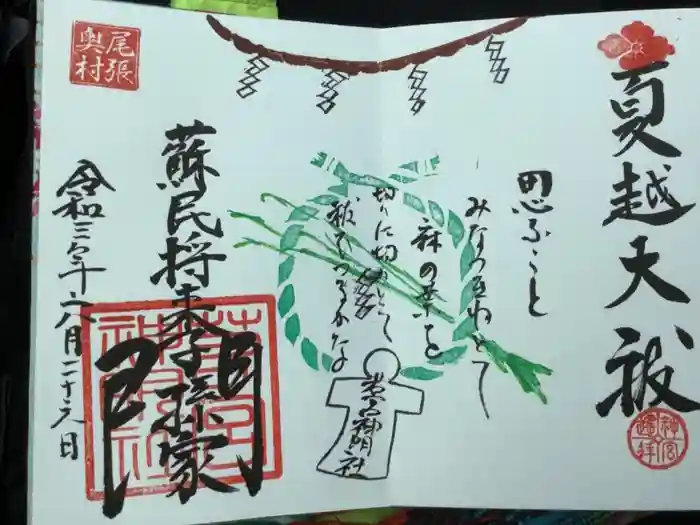 夏越大祓
神宮遥拝
思ふこと
みなつきねとて
麻の葉を
切りに切りても
祓へつるかな
神明社
尾張
奥村
蘇民将来子孫家
門
令和三年六月二十六日